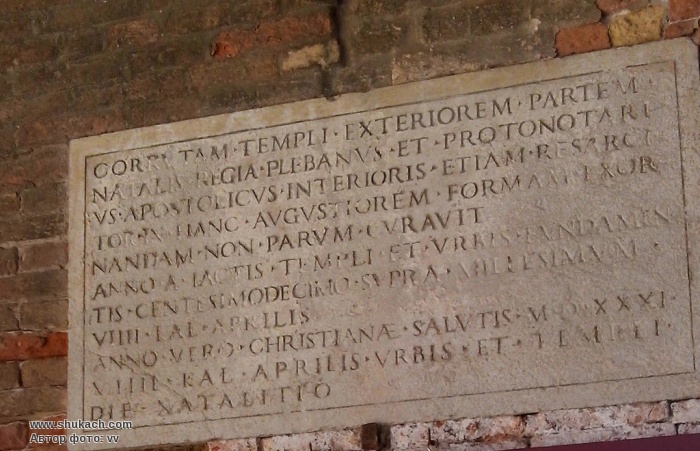 CORRUTAM · TEMPLI · EXTERIOREM · PARTEM
NATALIS · REGIA · PLEBANVS · ET · PROTONOTARI
VS · APOSTOLICVS · INTERIORIS · ETIAM · RESARCI
HANC · AVGVSTIOREM · FORMAM · EXOR
NANDAM · NON · PARVM · CVRAVIT
ANNO · A · IACTIS · TEMPLI · ET · VRBIS · FVNDAMEN
TIS · CENTESIMODECIMO · SVPRA · MILLESIMVM ·
VIIII · KAL · APRILIS
ANNO · VERO · CHRISTIANÆ · SALVTIS · M · D · XXXI ·
VIIII · KAL · APRILIS · VRBIS · ET · TEMPLI ·
DIE · NATALITIO
www.shukach.com
Автор фото: vv